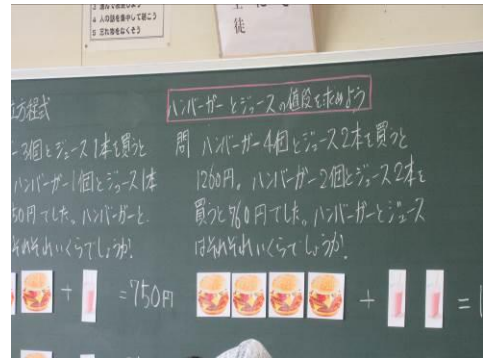 4 人の話を集中して聞こう
5 忘れ物をなくそう
徒
方程式
3個とジュース1本を買うと
ハンバーガー1個とジュース1本
50円でした。ハンバーガーと
それぞれいくらでしょうか?
= 750円
ハンバーガーとジュースの値段を求めよう
問 ハンバーガー4個とジュース2本を買うと
1260円。ハンバーガー2個とジュース2本を
買うと760円でした。ハンバーガーとジュース
はそれぞれいくらでしょうか?
+
+
=